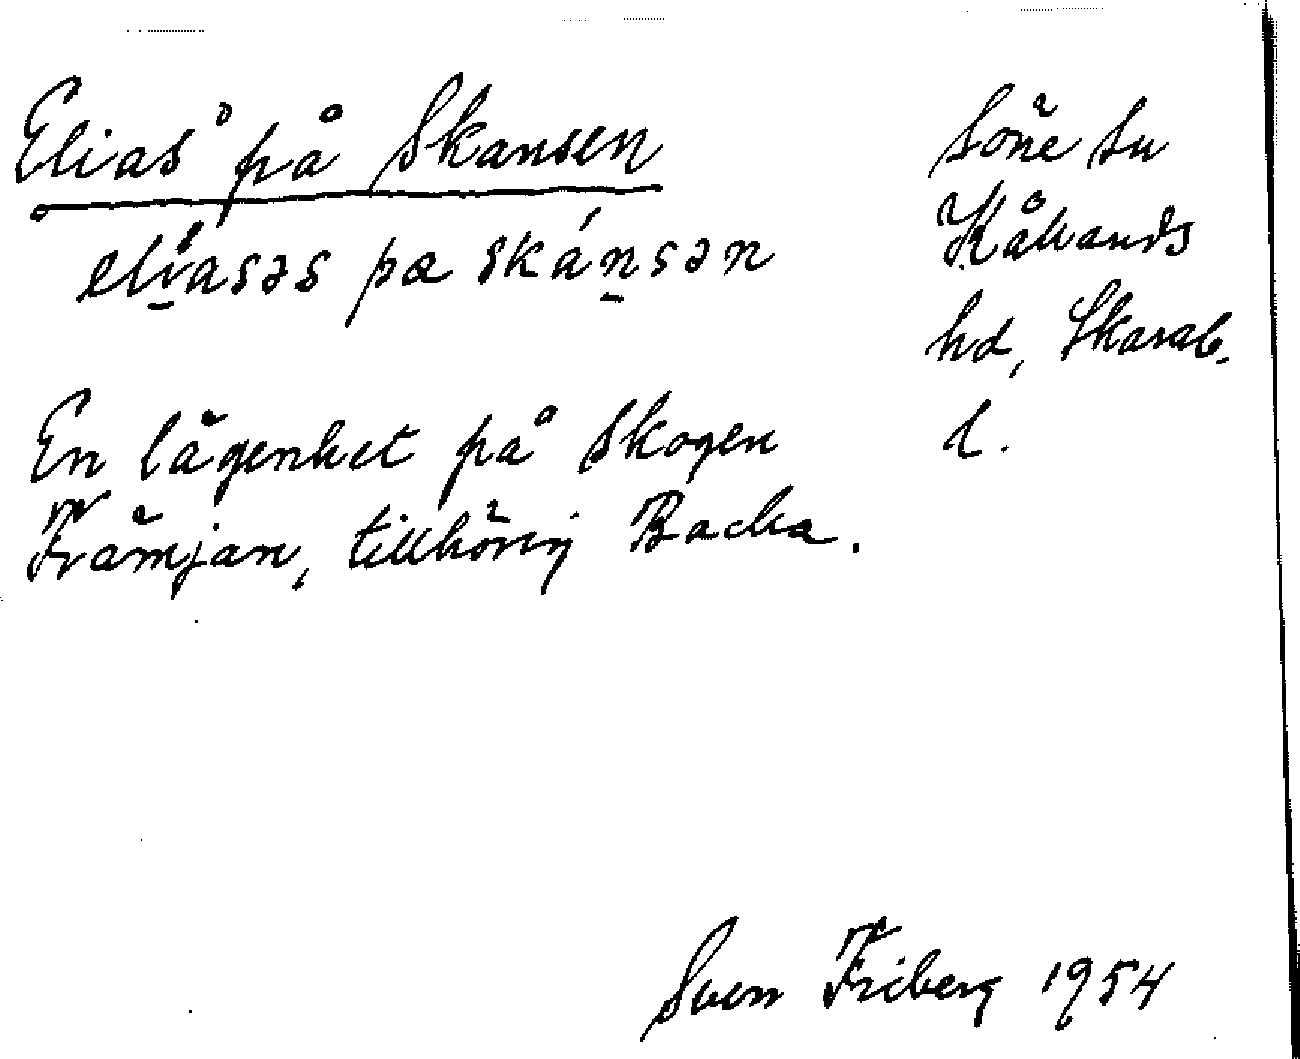 Elias' på Skansen
eliasəs pa skánsən
En lägenhet på skogen
Främjan, tillhörig Backa.
Söne sn
Kållands
hd, Skarab.
l.
Sven Friberg 1954